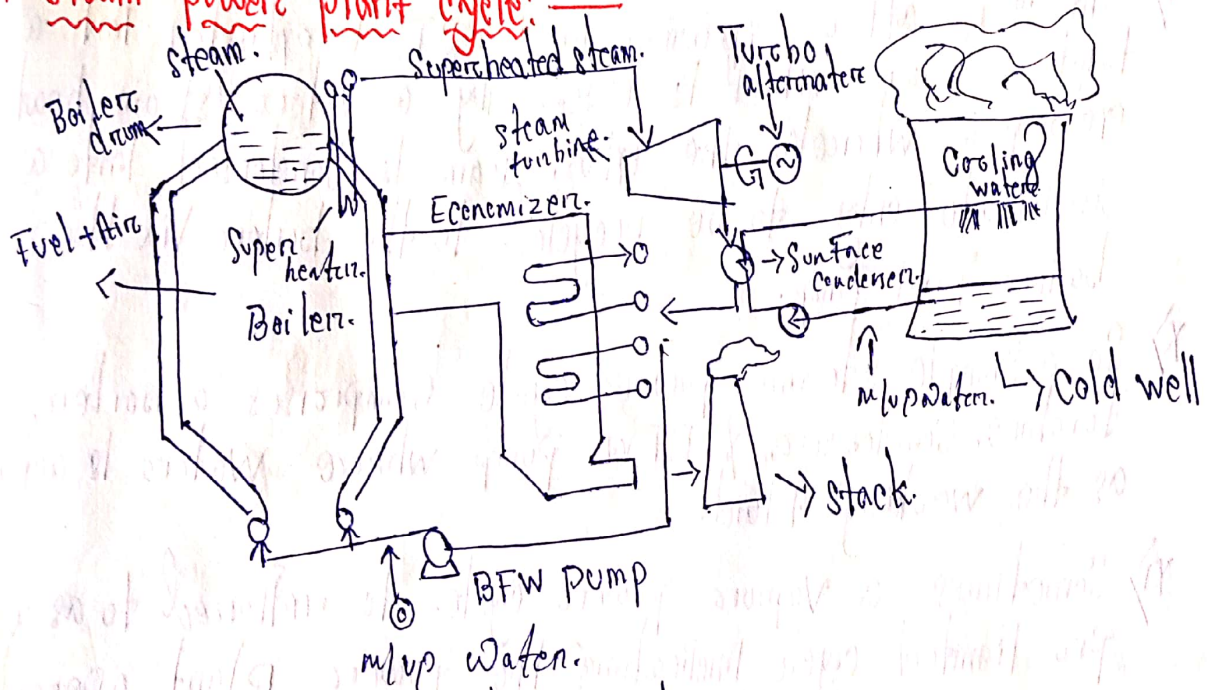 steam power plant cycle.
steam.
Superheated steam.
Turbo
alternator
Boiler
drum
steam
turbine.
G
Cooling
water
Economizer.
Fuel + Air
Super
heater.
Surface
condenser.
Boiler.
m/up water.
Cold well
stack.
BFW pump
m/up water.